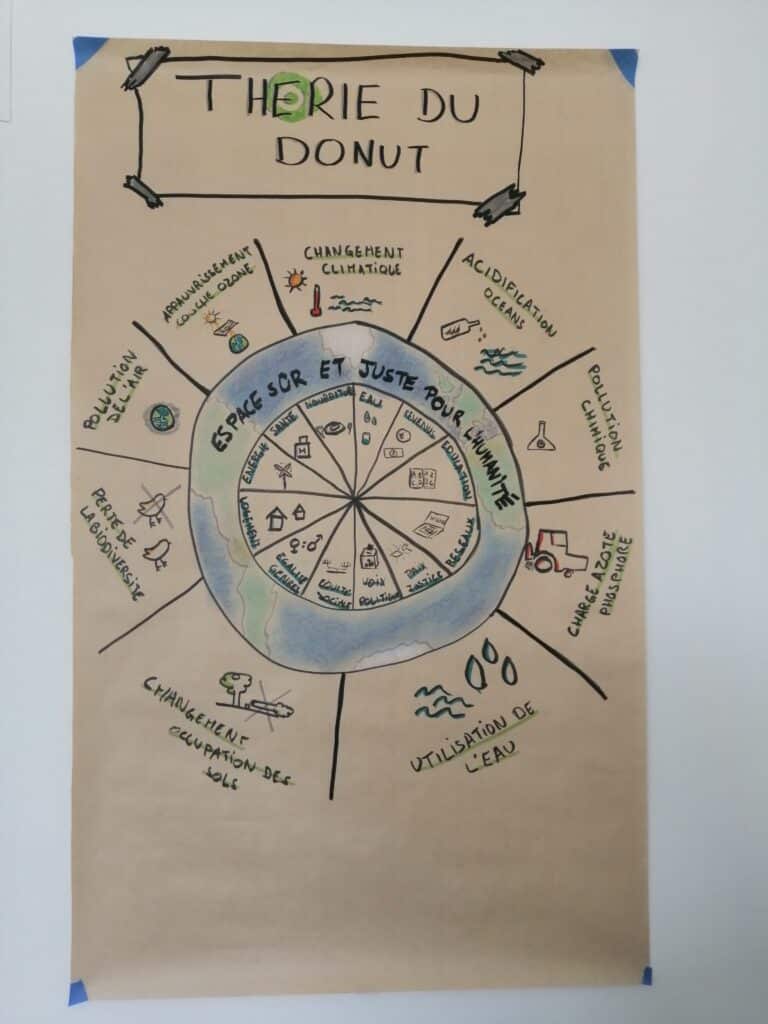 THERIE DU
DONUT
CHANGEMENT
CLIMATIQUE
ACIDIFICATION
OCEANS
POLLUTION
CHIMIQUE
CHARGE AZOTE
PHOSPHORE
UTILISATION DE
L'EAU
CHANGEMENT
OCCUPATION DES
SOLS
PERTE DE
LA BIODIVERSITE
POLLUTION
DE L'AIR
APPAUVRISSEMENT
COUCHE OZONE
ESPACE SÛR ET JUSTE POUR L'HUMANITÉ
EAU
REVENUS
EDUCATION
RESEAUX
PAIX
JUSTICE
VOIX
POLITIQUE
EQUITE
SOCIALE
EGALITE
GENRES
LOGEMENT
ENERGIE
SANTÉ
NOURRITURE